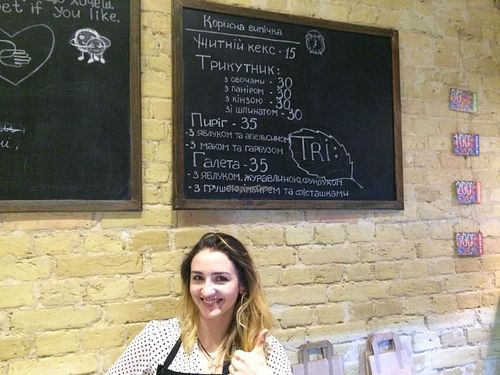 хочеш.
et if you like.
Корисна випічка
Учитній кекс - 15
Трикутник:
з овочами - 30
з паніром - 30
з кінзою - 30
зі шпинатом - 30
Пиріг - 35
- з яблуком та апельсином
- з маком та гарбузом
Галета - 35
- з яблуком, журавлиною, фундуком
- з грушею, імбирем та фісташками
TRI:
50
100
200
500